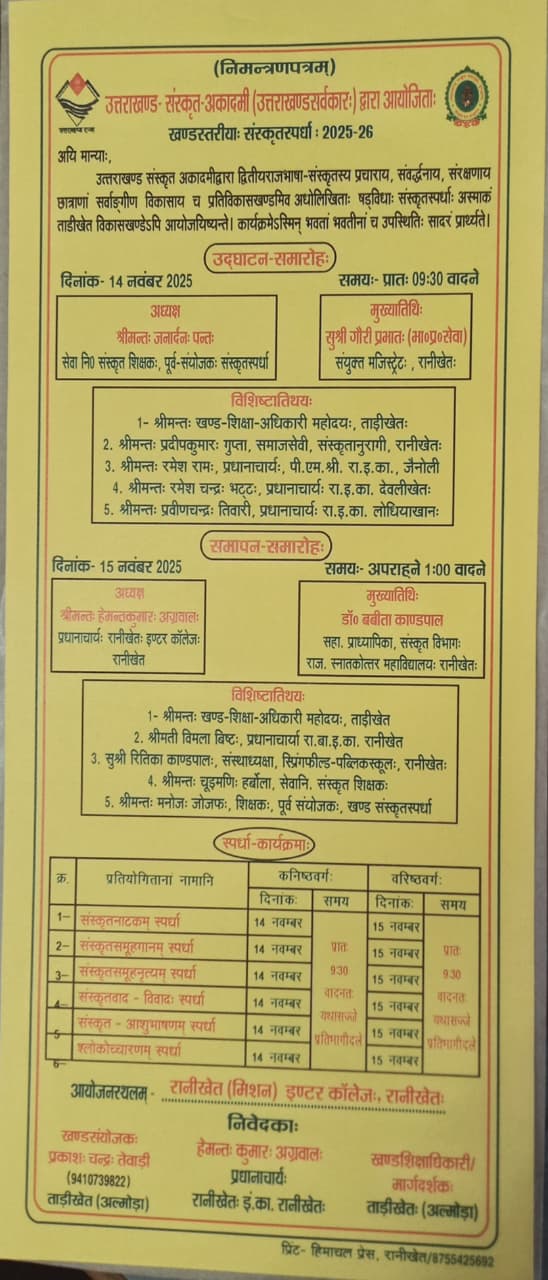 (निमन्त्रणपत्रम्)
उत्तराखण्ड- संस्कृत-अकादमी (उत्तराखण्डसर्वकारः) द्वारा आयोजिताः
खण्डस्तरीयाः संस्कृतस्पर्धाः 2025-26
अयि मान्याः,
उत्तराखण्ड संस्कृत अकादमीद्वारा द्वितीयराजभाषा-संस्कृतस्य प्रचाराय, संवर्द्धनाय, संरक्षणाय
छात्राणां सर्वाङ्गीण विकासाय च प्रतिविकासखण्डमिव अधोलिखिताः षड्विधाः संस्कृतस्पर्धाः अस्माकं
ताडीखेत विकासखण्डेऽपि आयोजयिष्यन्ते। कार्यक्रमेऽस्मिन् भवतां भवतीनां च उपस्थितिः सादरं प्रार्थ्यते।
उद्घाटन-समारोहः
दिनांक- 14 नवंबर 2025 समयः- प्रातः 09:30 वादने
अध्यक्ष
श्रीमन्तः जनार्दनः पन्तः
सेवा नि0 संस्कृत शिक्षकः, पूर्व-संयोजकः संस्कृतस्पर्धा
मुख्यातिथिः
सुश्री गौरी प्रभातः (भा०प्र०सेवा)
संयुक्त मजिस्ट्रेटः , रानीखेतः
विशिष्टातिथयः
1- श्रीमन्तः खण्ड-शिक्षा-अधिकारी महोदयः, ताड़ीखेतः
2. श्रीमन्तः प्रदीपकुमारः गुप्ता, समाजसेवी, संस्कृतानुरागी, रानीखेतः
3. श्रीमन्तः रमेश रामः, प्रधानाचार्यः, पी.एम.श्री. रा.इ.का., जैनोली
4. श्रीमन्तः रमेश चन्द्रः भट्टः, प्रधानाचार्यः रा.इ.का. देवलीखेतः
5. श्रीमन्तः प्रवीणचन्द्रः तिवारी, प्रधानाचार्यः रा.इ.का. लोधियाखानः
समापन-समारोहः
दिनांक- 15 नवंबर 2025 समयः- अपराह्ने 1:00 वादने
अध्यक्ष
श्रीमन्तः हेमन्तकुमारः अग्रवालः
प्रधानाचार्यः रानीखेतः इण्टर कॉलेजः
रानीखेत
मुख्यातिथिः
डॉ० बबीता काण्डपाल
सहा. प्राध्यापिका, संस्कृत विभागः
राज. स्नातकोत्तर महाविद्यालयः रानीखेतः
विशिष्टातिथयः
1- श्रीमन्तः खण्ड-शिक्षा-अधिकारी महोदयः, ताड़ीखेत
2. श्रीमती विमला बिष्टः, प्रधानाचार्या रा.बा.इ.का. रानीखेत
3. सुश्री रितिका काण्डपालः, संस्थाध्यक्षा, स्प्रिंगफील्ड-पब्लिकस्कूलः, रानीखेतः
4. श्रीमन्तः चूड़मणिः हर्बोला, सेवानि. संस्कृत शिक्षकः
5. श्रीमन्तः मनोजः जोजफः, शिक्षकः, पूर्व संयोजकः, खण्ड संस्कृतस्पर्धा
स्पर्धा-कार्यक्रमाः
क्र. प्रतियोगितानां नामानि कनिष्ठवर्गः वरिष्ठवर्गः
दिनांकः समय दिनांकः समय
1- संस्कृतनाटकम् स्पर्धा 14 नवम्बर 15 नवम्बर
2- संस्कृतसमूहगानम् स्पर्धा 14 नवम्बर प्रातः 15 नवम्बर प्रातः
3- संस्कृतसमूहनृत्यम् स्पर्धा 14 नवम्बर 9:30 15 नवम्बर 9:30
4- संस्कृतवाद - विवादः स्पर्धा 14 नवम्बर वादनतः 15 नवम्बर वादनतः
5- संस्कृत - आशुभाषणम् स्पर्धा 14 नवम्बर यथासज्जे 15 नवम्बर यथासज्जे
6- श्लोकोच्चारणम् स्पर्धा 14 नवम्बर प्रतिभागीदले 15 नवम्बर प्रतिभागीदले
आयोजनस्थलम् - रानीखेत (मिशन) इण्टर कॉलेजः, रानीखेतः
निवेदकाः
खण्डसंयोजकः
प्रकाशः चन्द्रः तेवाड़ी
(9410739822)
ताड़ीखेत (अल्मोड़ा)
हेमन्तः कुमारः अग्रवालः
प्रधानाचार्यः
रानीखेतः इं.का. रानीखेतः
खण्डशिक्षाधिकारी/
मार्गदर्शकः
ताड़ीखेतः (अल्मोड़ा)
प्रिंट- हिमाचल प्रेस, रानीखेत/8755425692